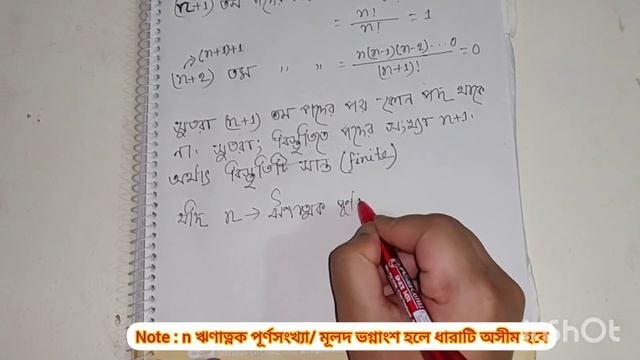 (n+1) তম পদের
= n!/n! = 1
(n+1)+1
(n+2) তম " " = n(n-1)(n-2)...0/(n+1)! = 0
সুতরা (n+1) তম পদের পর কোন পদ থাকে
না. সুতরা; বিস্তৃতিতে পদের সংখ্যা n+1.
অর্থাৎ বিস্তৃতিটি সান্ত (finite)
যদি n → ঋণাত্মক পূর্ণ
Note : n ঋণাত্নক পূর্ণসংখ্যা/ মূলদ ভগ্নাংশ হলে ধারাটি অসীম হবে